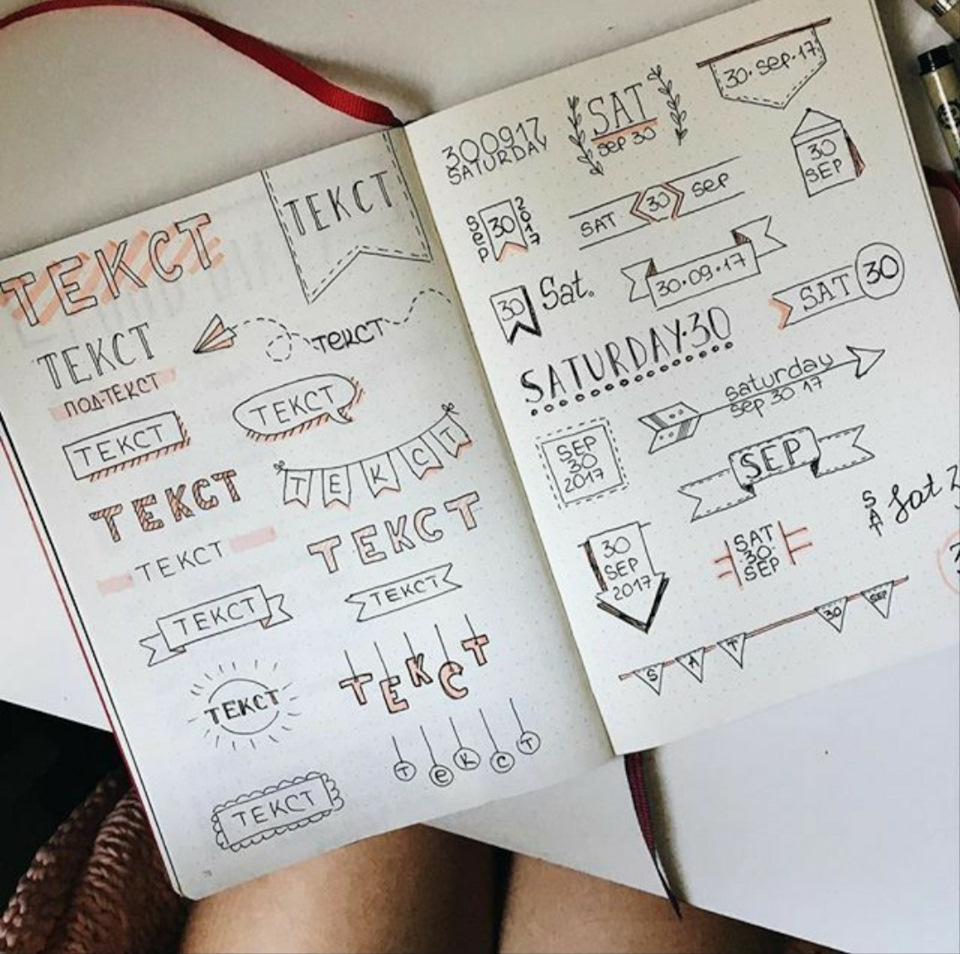 ТЕКСТ
ТЕКСТ
ТЕКСТ
ПОД-ТЕКСТ
ТЕКСТ
ТЕКСТ
ТЕКСТ
ТЕКСТ
ТЕКСТ
ТЕКСТ
ТЕКСТ
ТЕКСТ
ТЕКСТ
ТЕКСТ
ТЕКСТ
ТЕКСТ
ТЕКСТ
ТЕКСТ
300917
SATURDAY
SAT
sep 30
30·sep·17
30
SEP
sep
30
2017
SAT 30 sep
30 Sat.
30·09·17
SAT 30
SATURDAY·30
saturday
sep 30 17
SEP
30
2017
SEP
SA
Sat
30
SEP
2017
SAT
30·
SEP
SAT 30 SEP